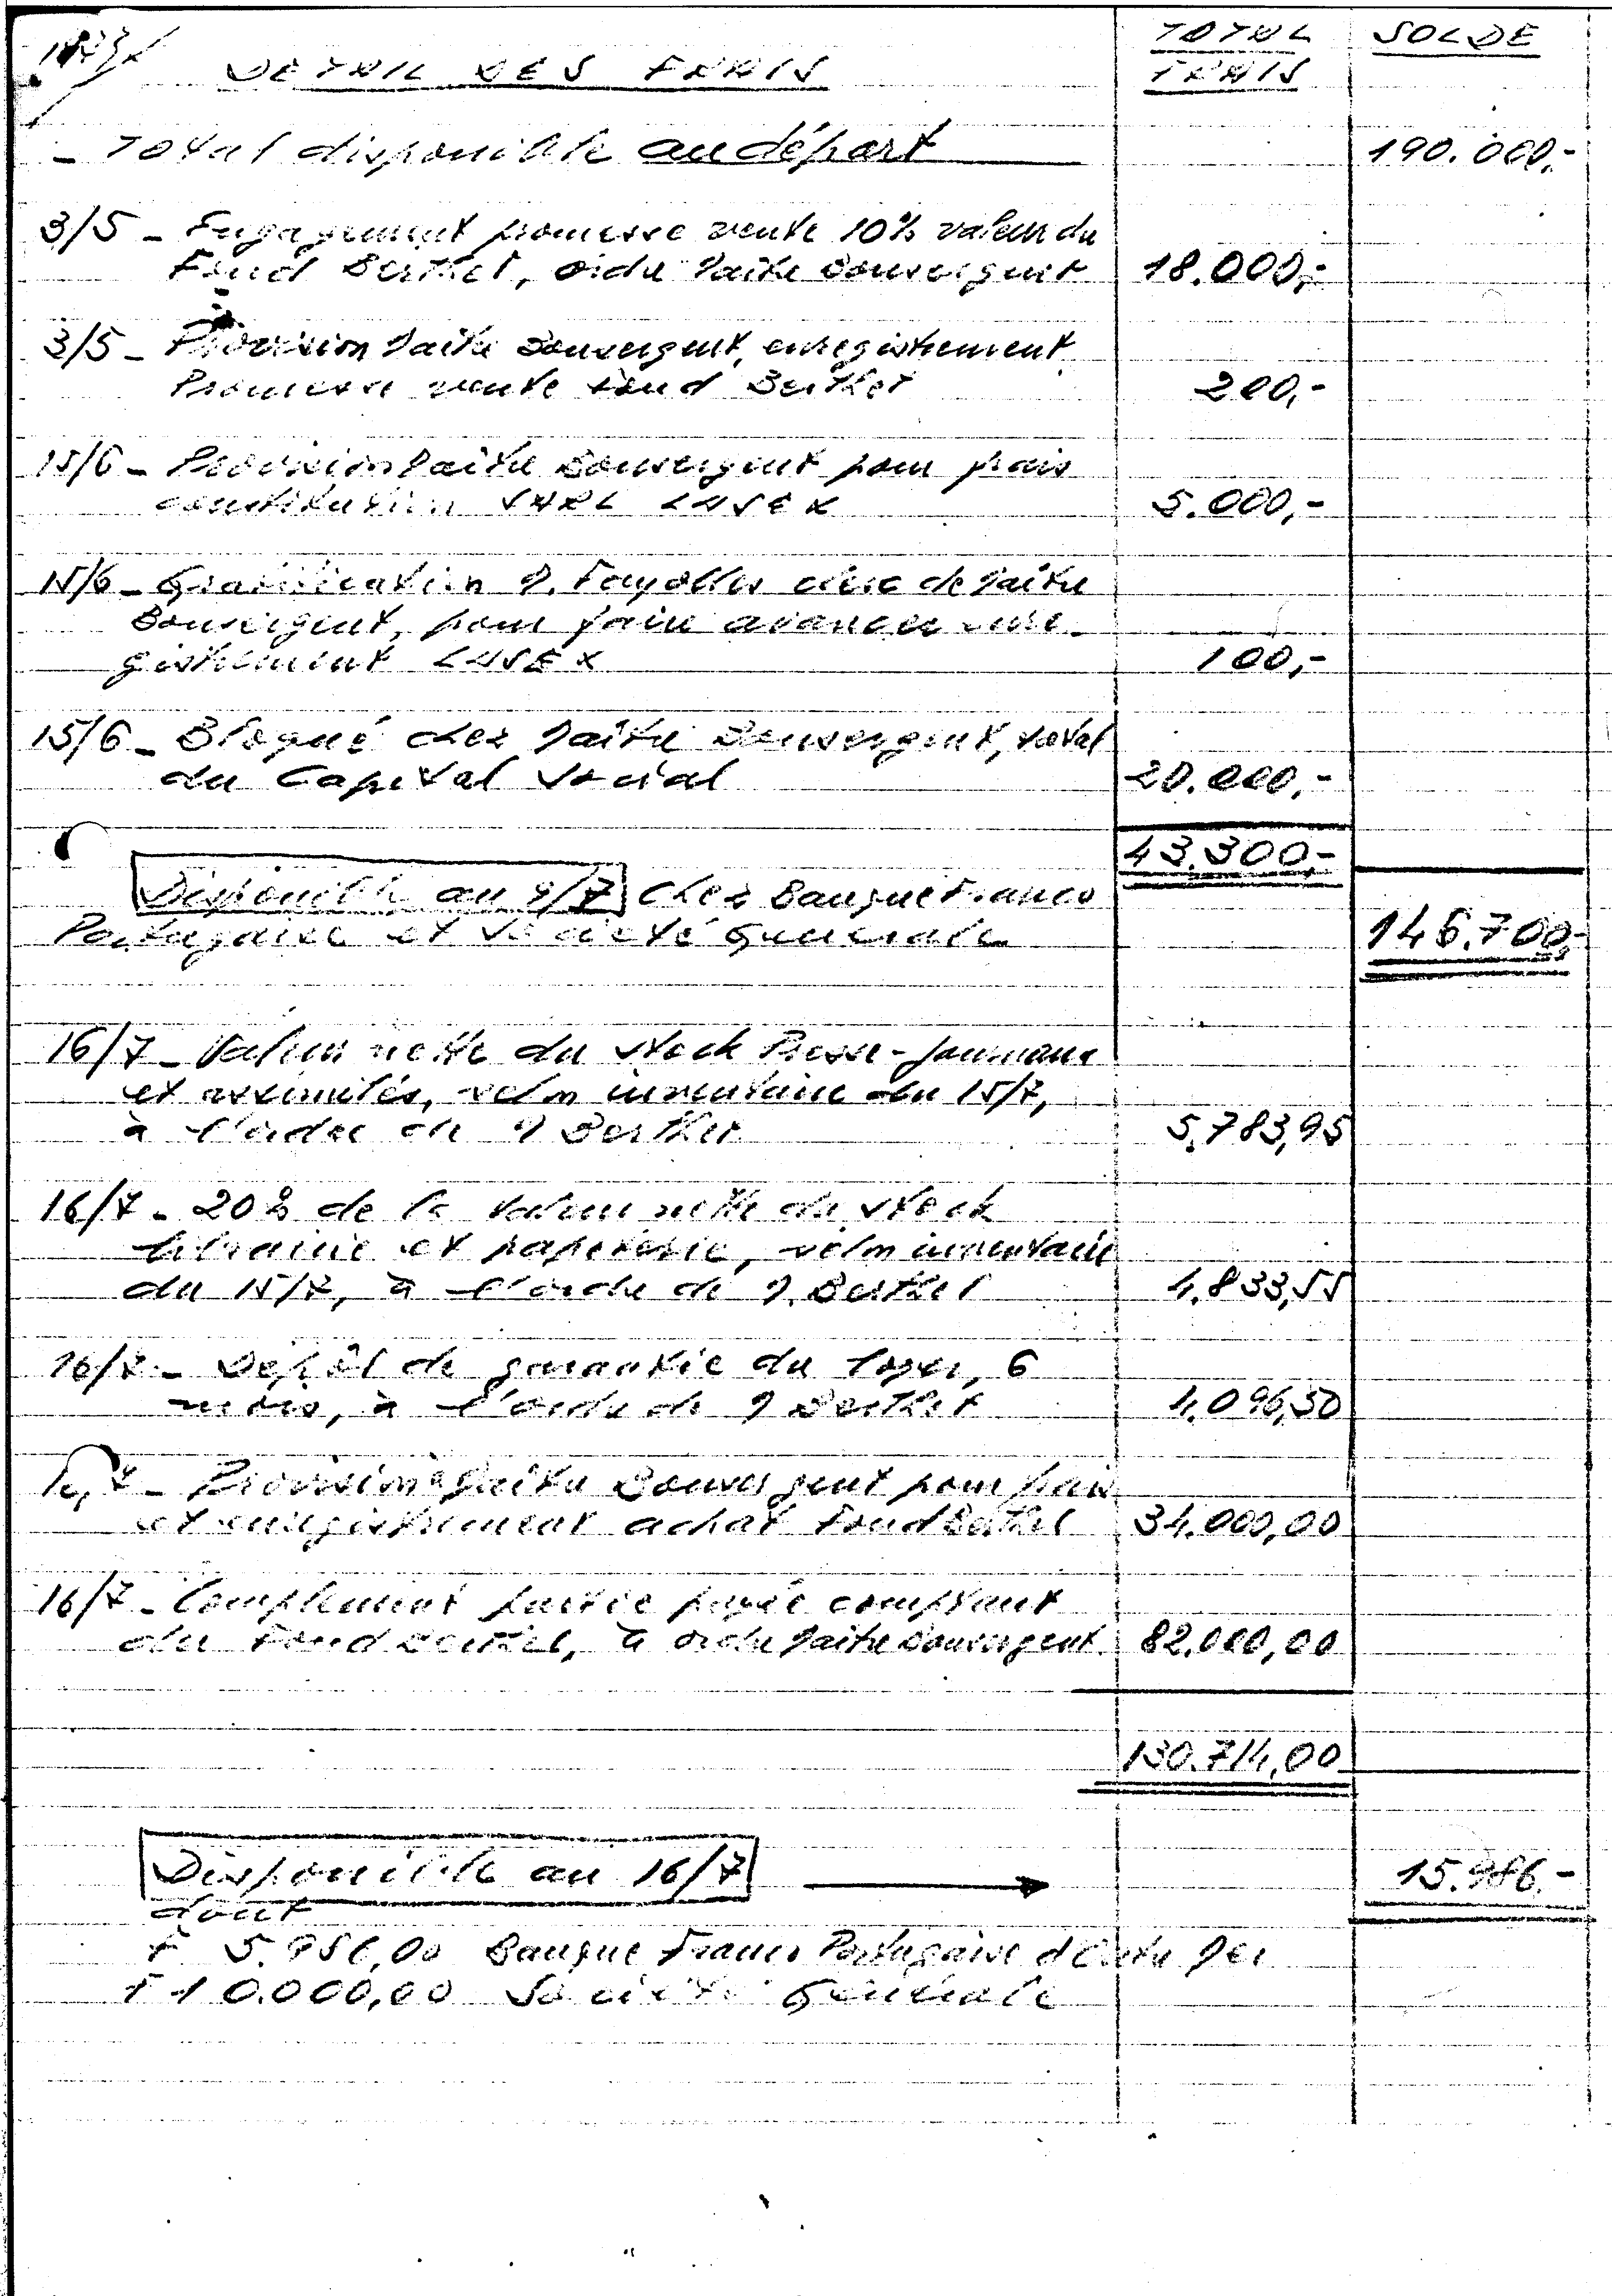 1973
DETAIL DES FRAIS
TOTAL FRAIS
SOLDE
- Total disponible au départ 190.000,-
3/5 - Engagement promesse vente 10% valeur du
Fond Berthet, ordre Maître Bouvergent 18.000,-
3/5 - Provision Maître Bouvergent, enregistrement
Promesse vente Fond Berthet 200,-
15/6 - Provision Maître Bouvergent pour frais
constitution SARL LASEX 5.000,-
15/6 - Gratification M. Fayolles clerc de Maître
Bouvergent, pour faire avancer enre-
gistrement LASEX 100,-
15/6 - Bloqué chez Maître Bouvergent, total
du Capital Social 20.000,-
43.300-
Disponible au 9/7 chez Banque Franco
Portugaise et Société Générale 146.700,-
16/7 - Valeur nette du stock Presse-Journaux
et assimilés, selon inventaire du 15/7,
à l'ordre de M Berthet 5.783,95
16/7 - 20% de la valeur nette du stock
librairie et papeterie, selon inventaire
du 15/7, à l'ordre de M. Berthet 4.833,55
16/7 - Dépôt de garantie du loyer, 6
mois, à l'ordre de M Berthet 4.096,50
16/7 - Provision Maître Bouvergent pour frais
et enregistrement achat Fond Berthet 34.000,00
16/7 - Complément partie payée comptant
du Fond Berthet, à ordre Maître Bouvergent 82.000,00
130.714,00
Disponible au 16/7 15.986.-
dont
F 5.986,00 Banque Franco Portugaise d'Outre Mer
F 10.000,00 Société Générale